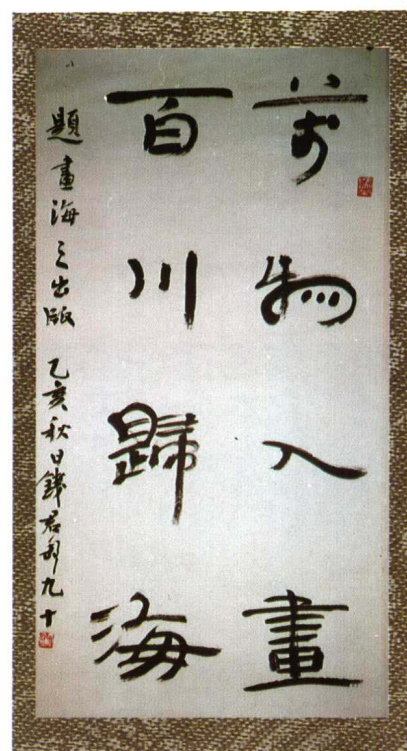 萬物入畫
百川歸海
題畫海之出版 乙亥秋日錢君匋九十